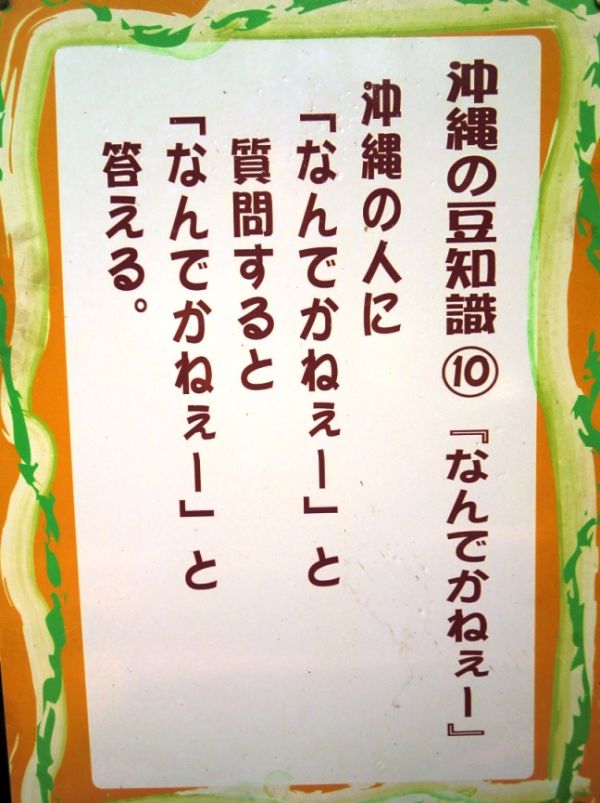 沖縄の豆知識⑩『なんでかねぇー』
沖縄の人に
「なんでかねぇー」と
質問すると
「なんでかねぇー」と
答える。